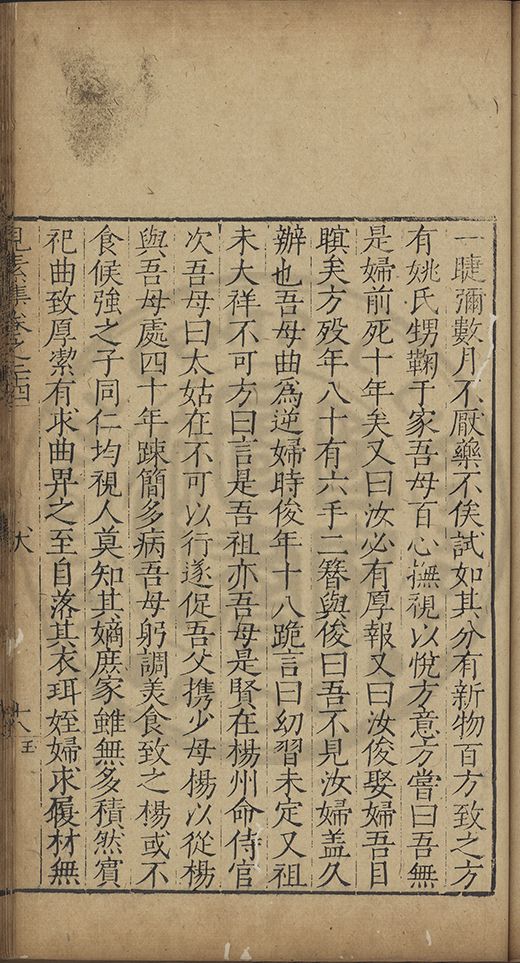 一睫彌數月不厭藥不俟試如其分有新物百方致之方
有姚氏甥鞠于家吾母百心撫視以悅方意方嘗曰吾無
是婦前死十年矣又曰汝必有厚報又曰汝俊娶婦吾目
瞑矣方歿年八十有六手二簪與俊曰吾不見汝婦盖久
辦也吾母曲為逆婦時俊年十八跪言曰幼習未定又祖
未大祥不可方曰言是吾祖亦吾母是賢在楊州命侍官
次吾母曰太姑在不可以行遂促吾父携少母楊以從楊
與吾母處四十年踈簡多病吾母躬調美食致之楊或不
食候強之子同仁均視人莫知其嫡庶家雖無多積然賓
祀曲致厚潔有求曲畀之至自落其衣珥姪婦求履材無
集卷之二十四
十八